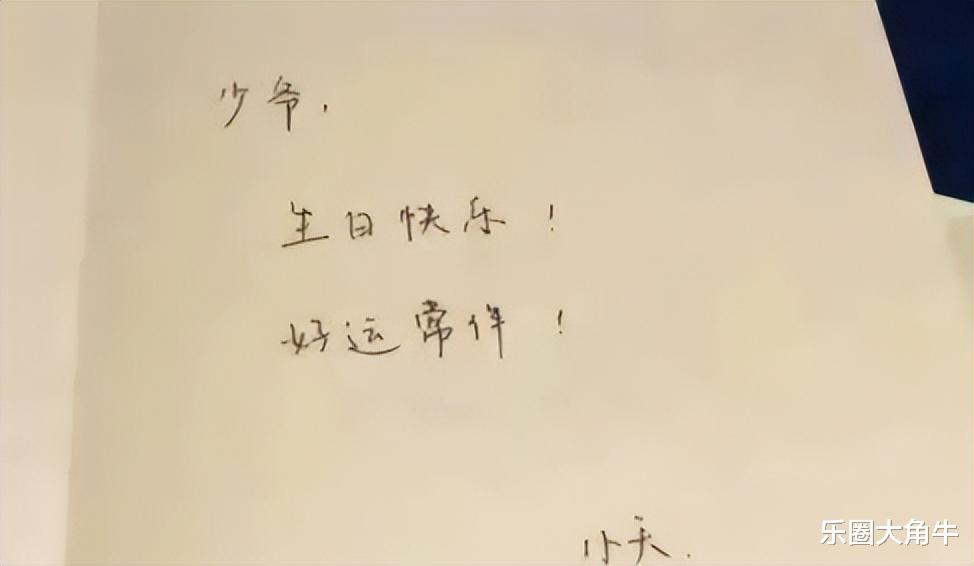 少爷，
生日快乐！
好运常伴！
小天.
乐圈大角牛